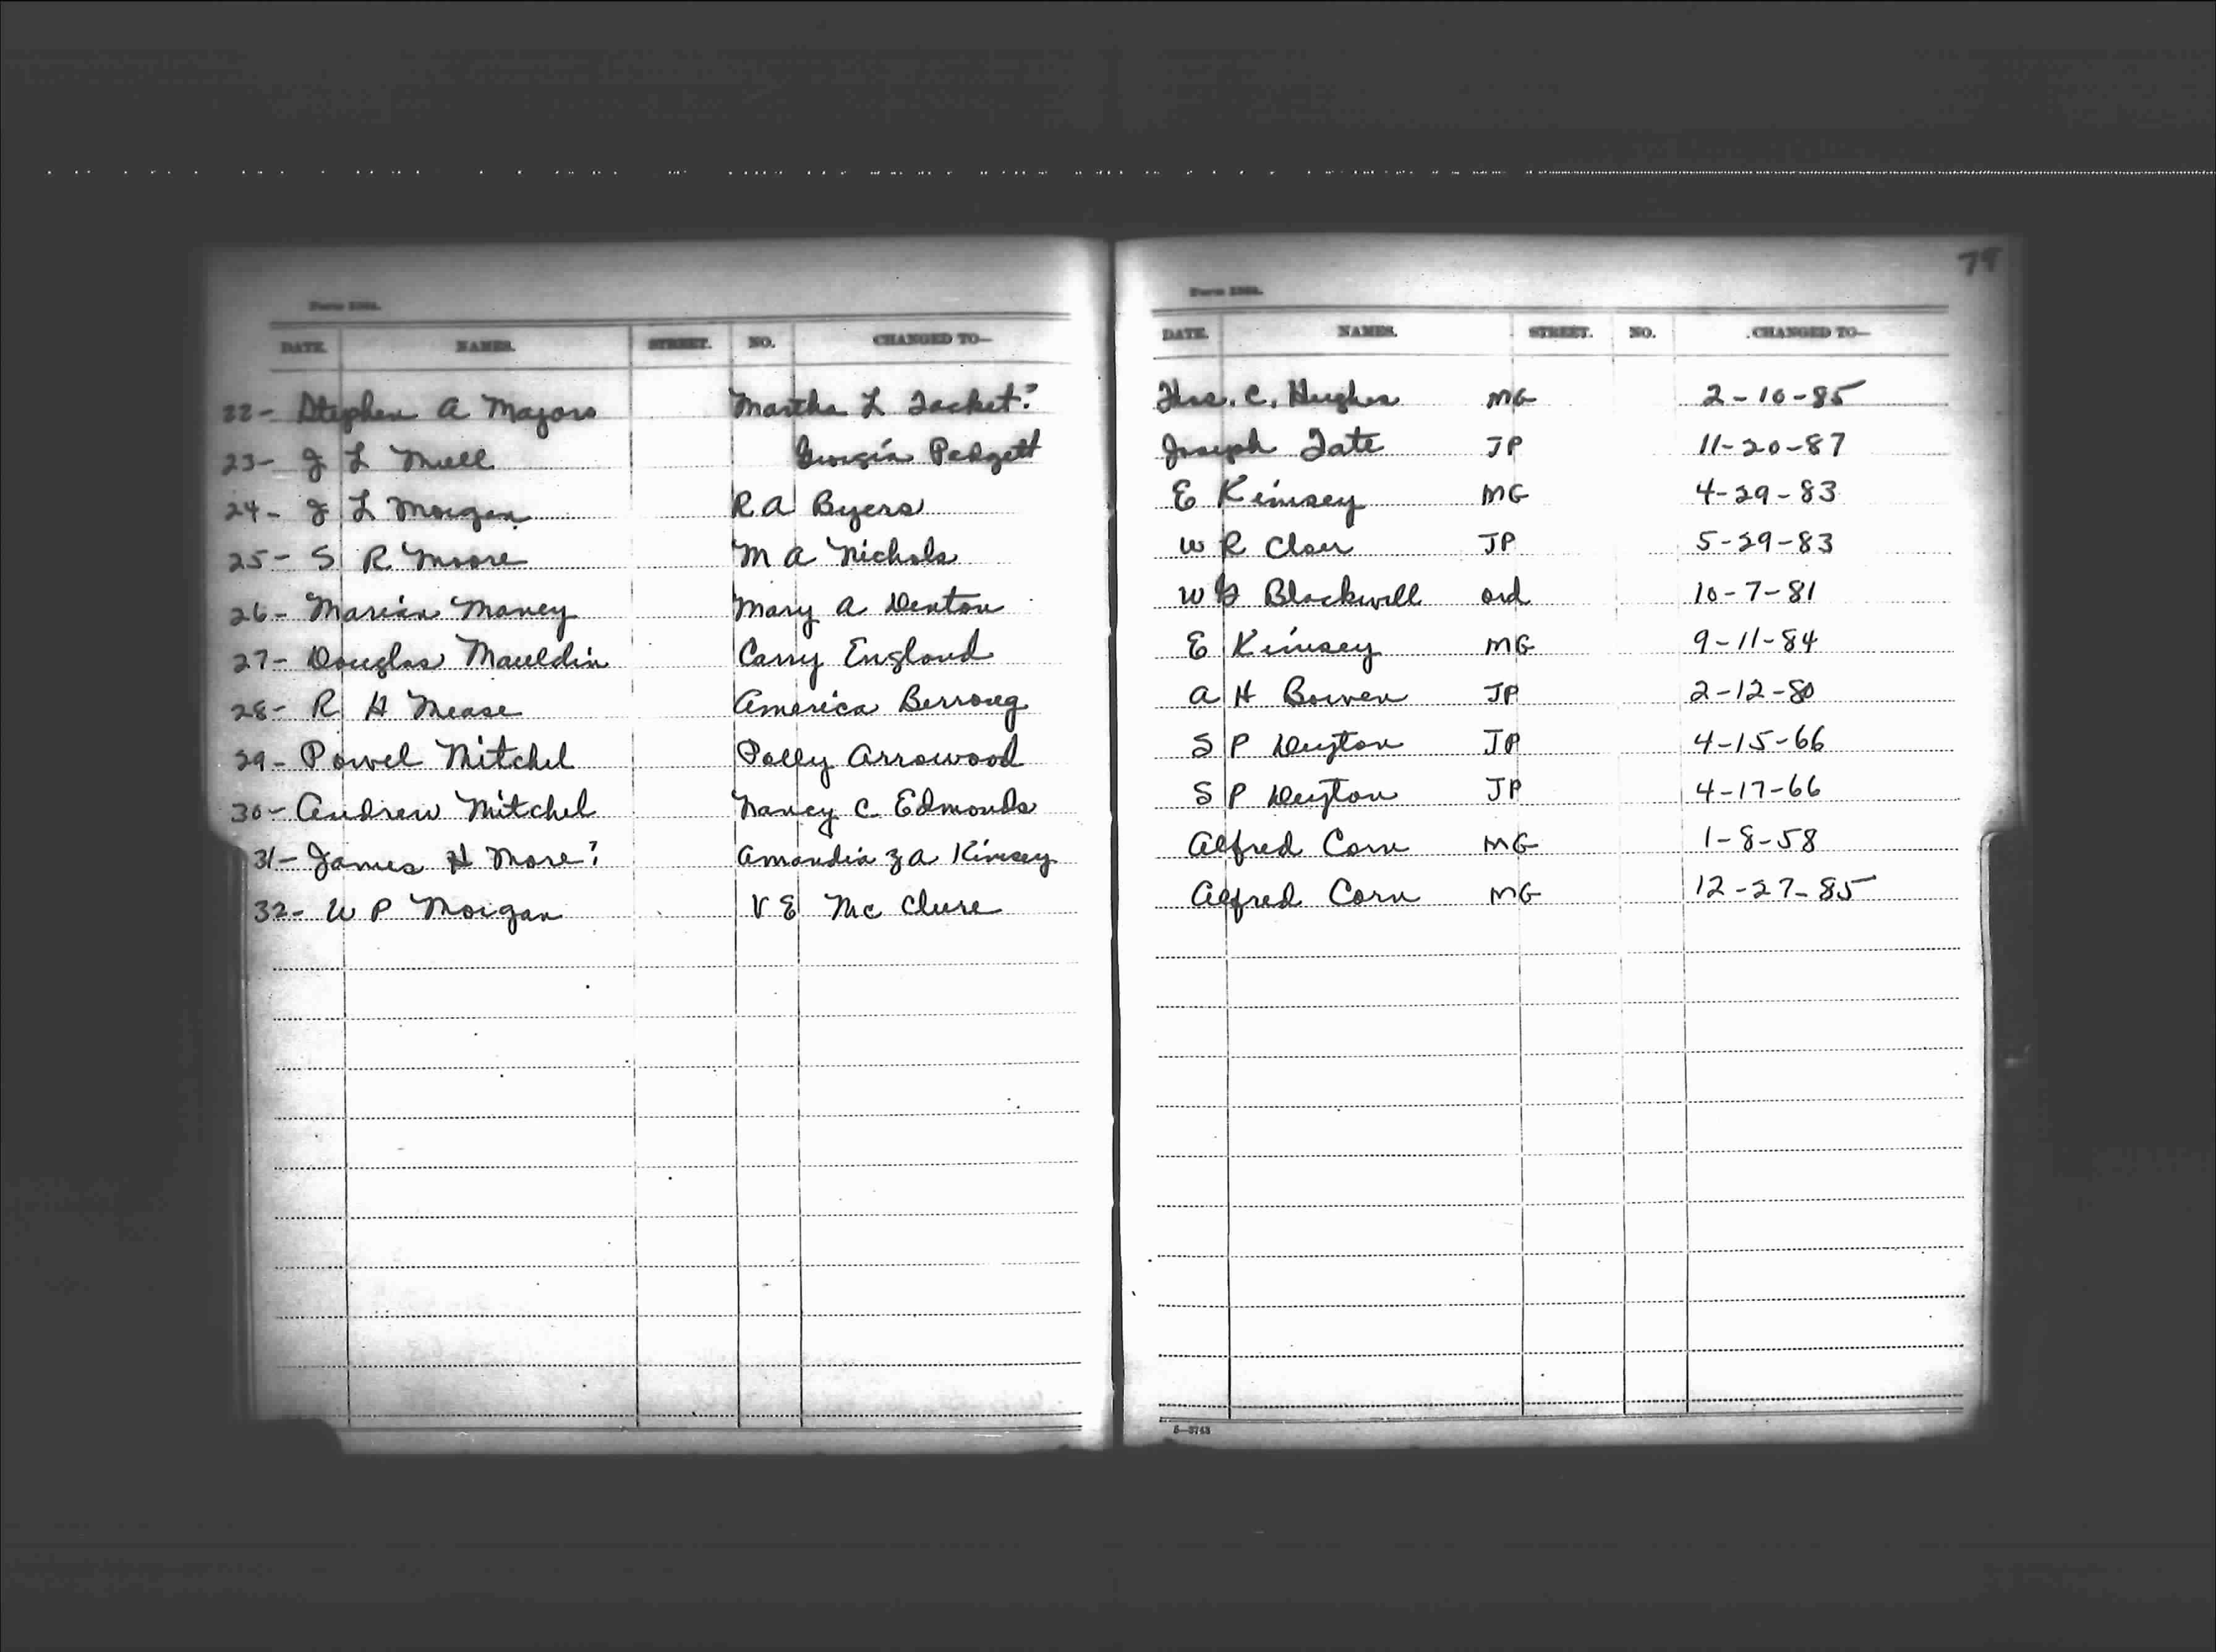 79
Form 1364.
DATE. NAMES. STREET. NO. CHANGED TO—
22- Stephen A Majors Martha L Tacket?
23- J L Mull Georgia Padgett
24- J L Morgan R A Byers
25- S R Moore M A Nichols
26- Marion Maney Mary A Denton
27- Douglas Mauldin Carry England
28- R H Mease America Berrong
29- Powel Mitchel Polly Arrowood
30- Andrew Mitchel Nancy C. Edmonds
31- James H More? Amandia Z A Kimsey
32- W P Morgan V E McClure
DATE. NAMES. STREET. NO. CHANGED TO—
Thos. C. Hughes MG 2-10-85
Joseph Tate JP 11-20-87
E Kimsey MG 4-29-83
W R Clour JP 5-29-83
W G Blackwell ord 10-7-81
E Kimsey MG 9-11-84
A H Bowen JP 2-12-80
S P Deyton JP 4-15-66
S P Deyton JP 4-17-66
Alfred Corn MG 1-8-58
Alfred Corn MG 12-27-85